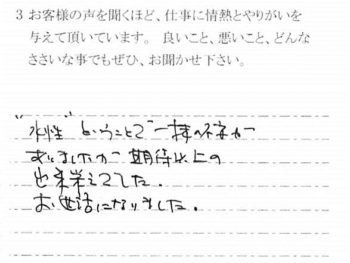 3 お客様の声を聞くほど、仕事に情熱とやりがいを
与えて頂いています。 良いこと、悪いこと、どんな
ささいな事でもぜひ、お聞かせ下さい。
"水性" ということで一抹の不安が
ありましたが 期待以上の
出来栄えでした。
お世話になりました。